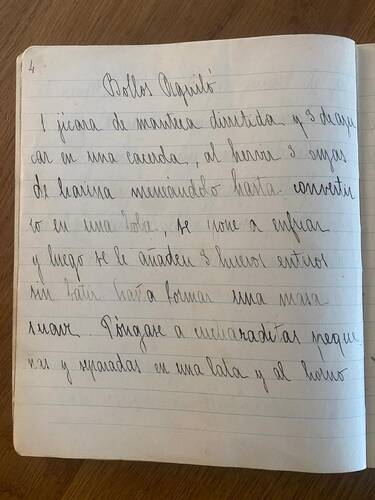 4
Bollos Aguiló
1 jicara de manteca dirretida y 3 de azu
car en una cacerola, al hervir 3 onzas
de harina meneandolo hasta convertir
lo en una bola, se pone a enfriar
y luego se le añaden 3 huevos enteros
sin batir hasta formar una masa
suave. Póngase a cucharaditas peque
ñas y separadas en una lata y al horno